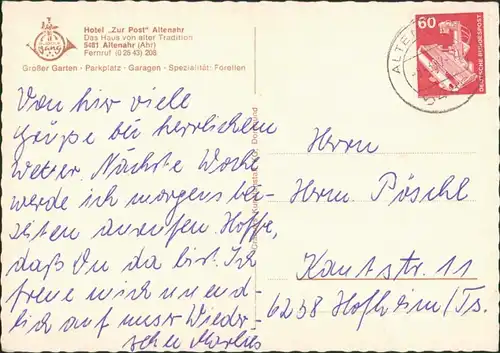 Hotel „Zur Post" Altenahr
Das Haus von alter Tradition
5481 Altenahr (Ahr)
Fernruf (0 26 43) 208
Großer Garten · Parkplatz · Garagen · Spezialität: Forellen
60
DEUTSCHE BUNDESPOST
ALTEN
Von hier viele
Grüße bei herrlichem
Wetter. Nächste Woche
werde ich morgens bei-
zeiten anrufen. Hoffe,
daß Du da bist. Ich
freue mich unend-
lich auf unser Wieder-
sehen Marlies
Herrn
Herm. Pöschl
Kantstr. 11
6238 Hofheim/Ts.